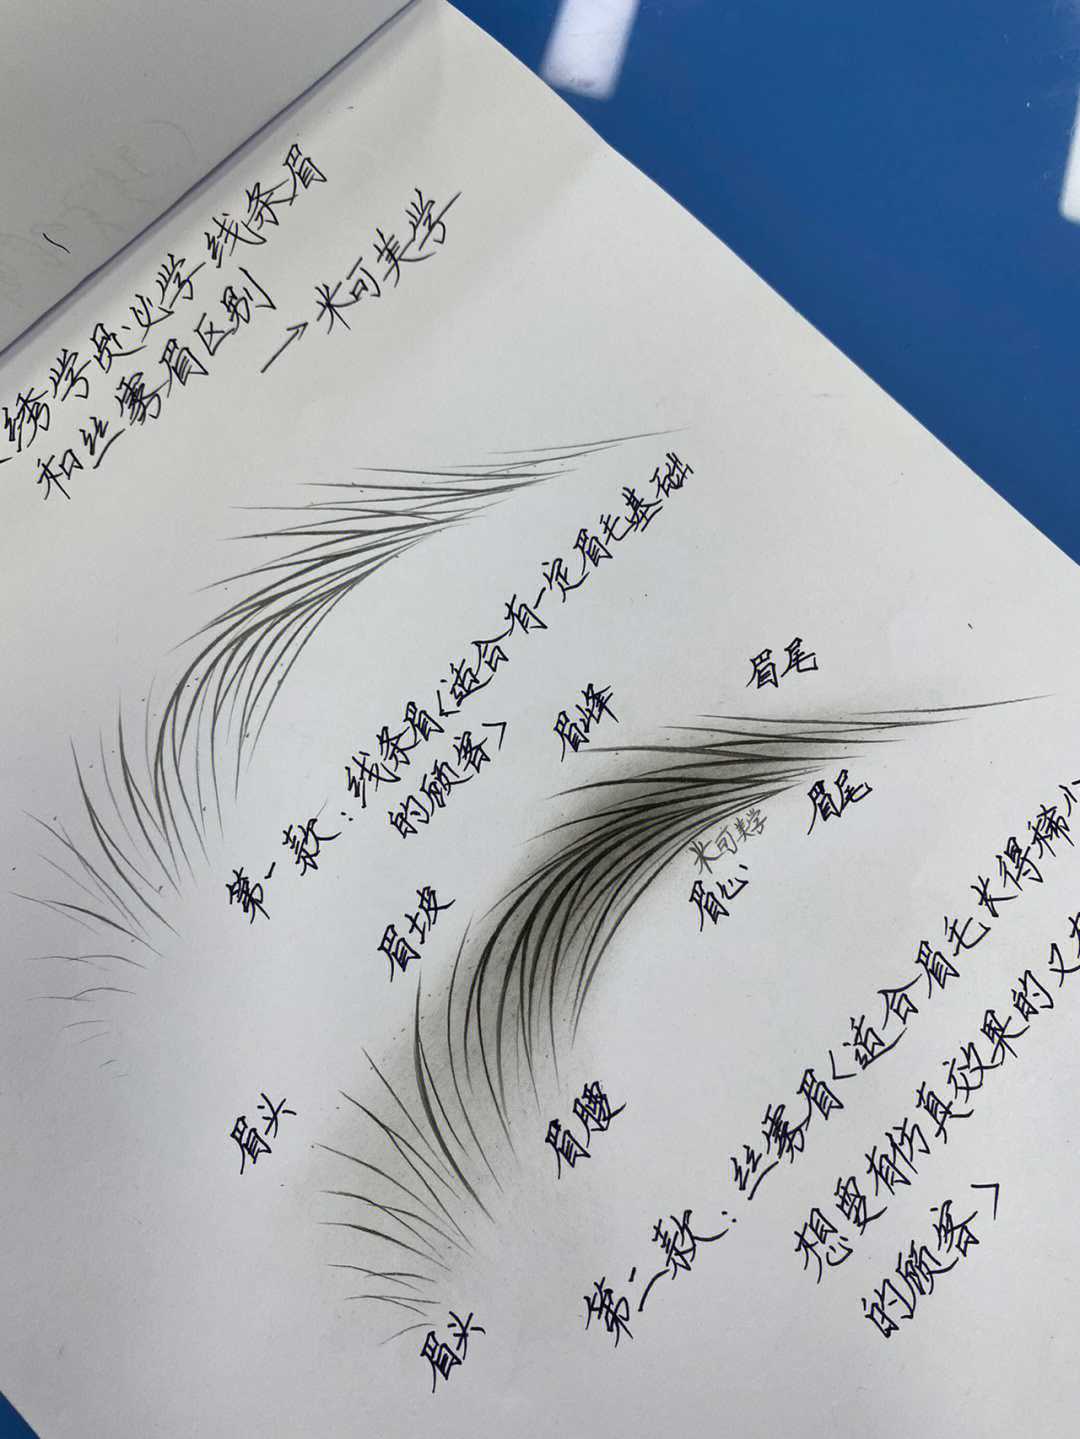 绣学员必学线条眉
和丝雾眉区别
→米可美学
第一款：线条眉<适合有一定眉毛基础
的顾客>
眉尾
眉峰
眉尾
米可美学
眉心
眉坡
眉头
眉腰
第二款：丝雾眉<适合眉毛长得稀少
想要有仿真效果的又
的顾客>
眉头